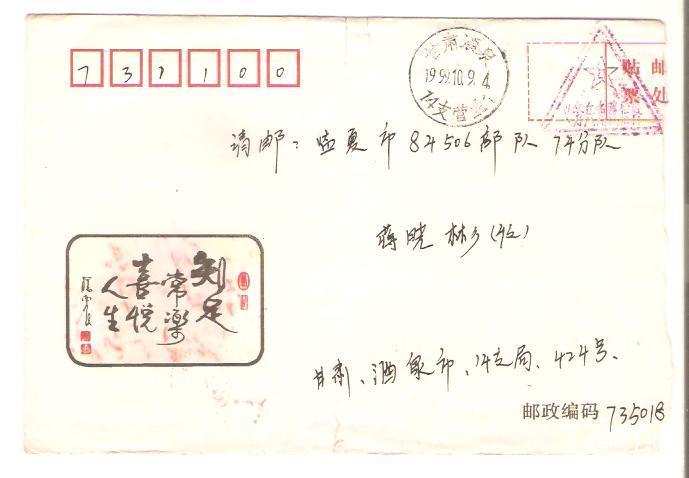 731100
甘肃酒泉
1999.10.9.4
14支营业
贴邮
票处
请邮：临夏市84506部队74分队
蒋晓彬(收)
知足
常樂
喜悦
人生
甘肃、酒泉市、14支局、424号、
邮政编码 735018